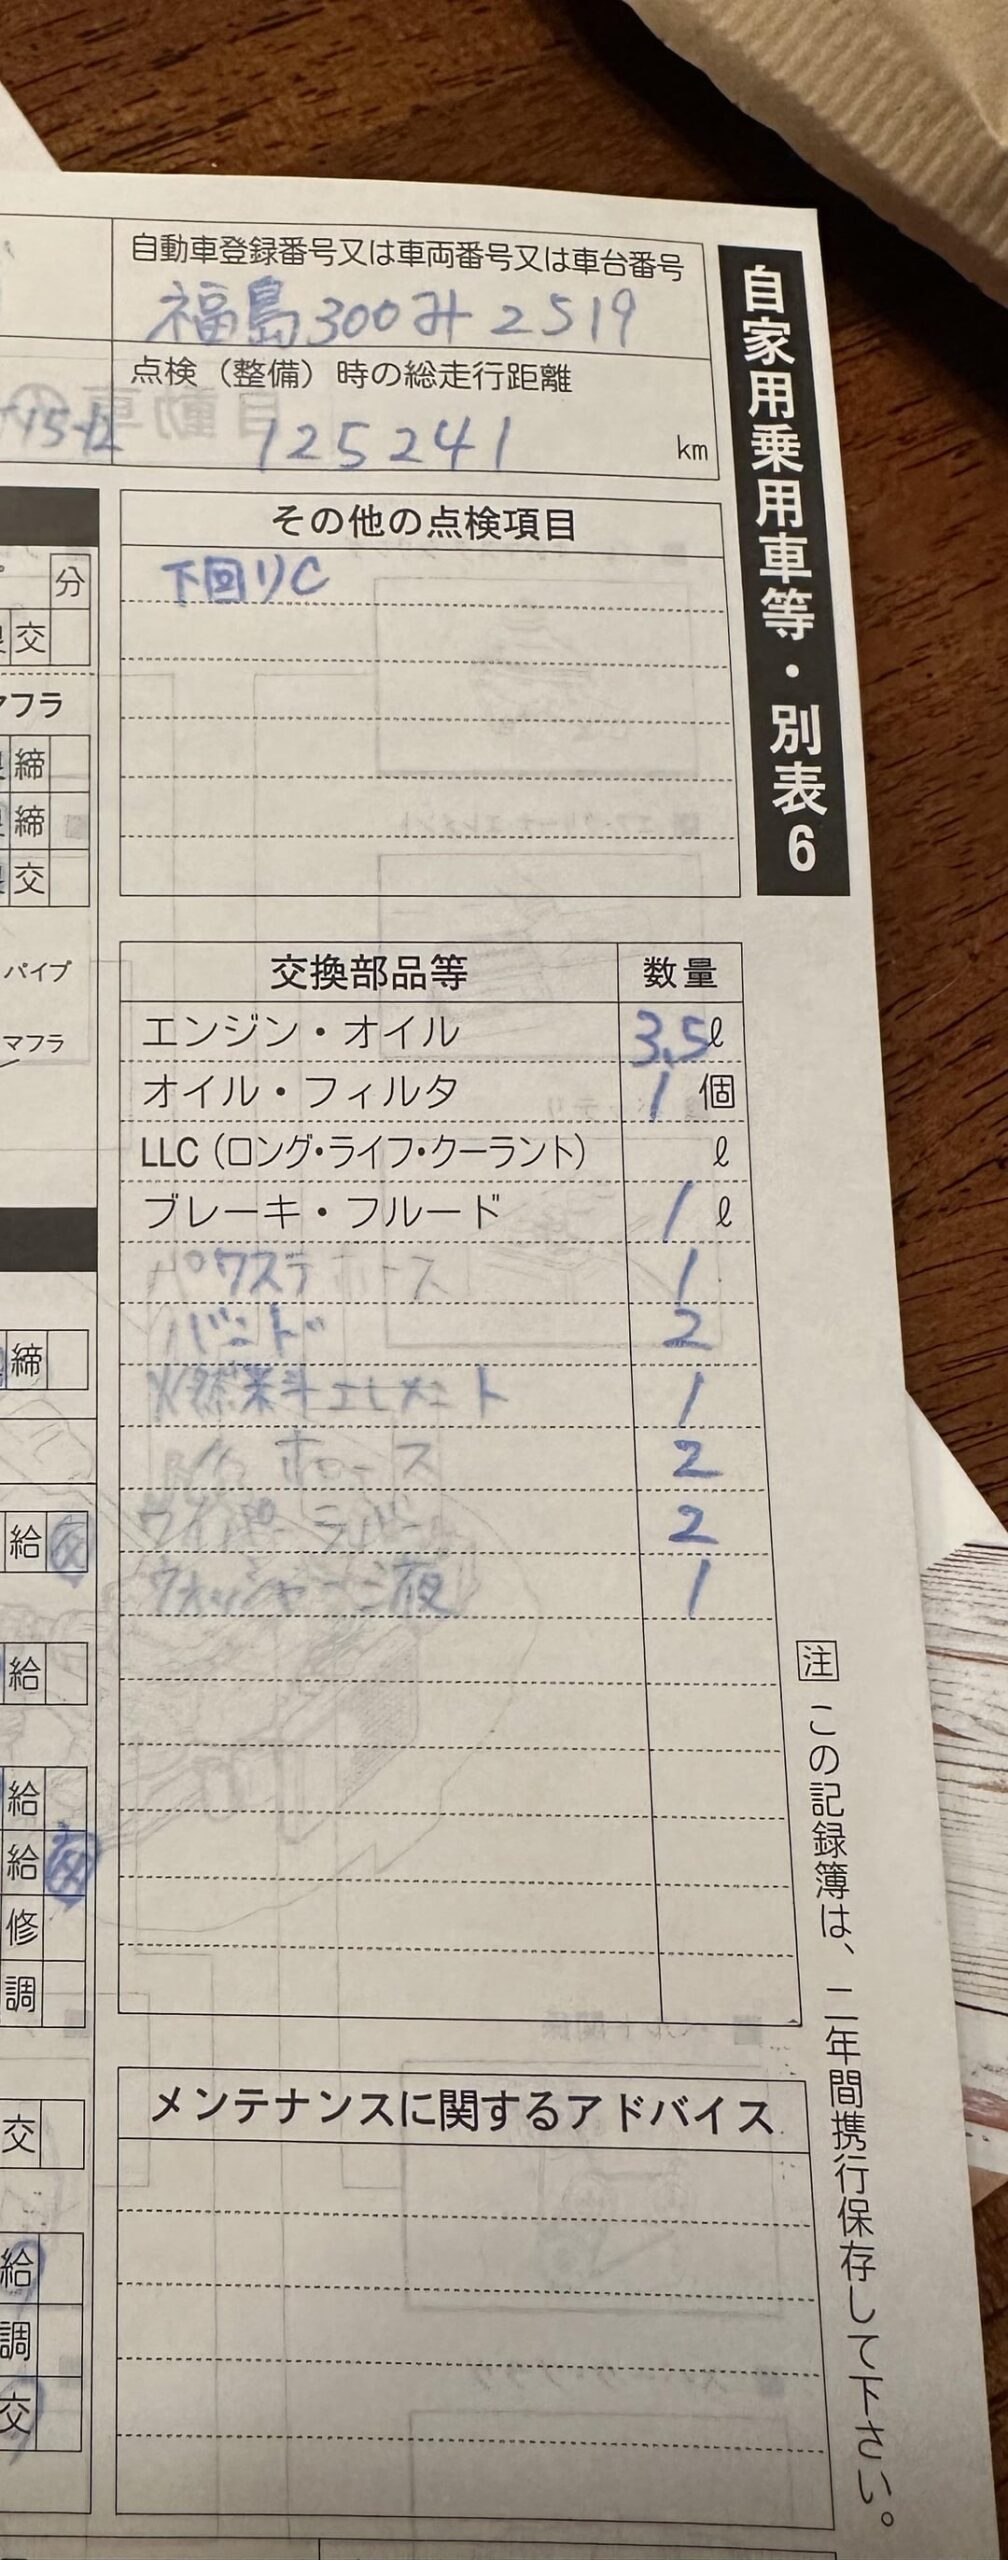 自家用乗用車等・別表6
自動車登録番号又は車両番号又は車台番号
福島300み2519
点検（整備）時の総走行距離
125241 km
その他の点検項目
下回りC
分
交
マフラ
締
締
交
パイプ
マフラ
交換部品等 数量
エンジン・オイル 3.5ℓ
オイル・フィルタ 1個
LLC（ロング・ライフ・クーラント） ℓ
ブレーキ・フルード 1ℓ
パワステホース 1
バンド 2
燃料エレメント 1
ホース 2
ワイパーラバー 2
ウォッシャー液 1
締
給
給
給
給
修
調
交
給
調
交
メンテナンスに関するアドバイス
注 この記録簿は、二年間携行保存して下さい。